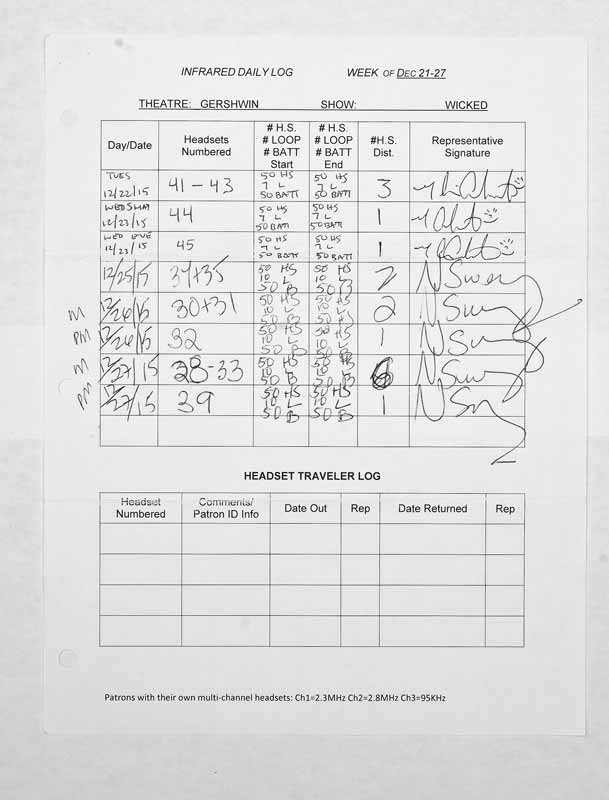 INFRARED DAILY LOG WEEK OF DEC 21-27
THEATRE: GERSHWIN SHOW: WICKED
Day/Date Headsets Numbered # H.S. # LOOP # BATT Start # H.S. # LOOP # BATT End #H.S. Dist. Representative Signature
TUES 12/22/15 41 - 43 50 HS 7 L 50 BATT 50 HS 7 L 50 BATT 3
WED 12/23/15 44 50 HS 7 L 50 BATT 50 HS 7 L 50 BATT 1
WED EVE 12/23/15 45 50 HS 7 L 50 BATT 50 HS 7 L 50 BATT 1
12/25/15 50 HS 10 L 50 B 50 HS 10 L 50 B 2
M 12/26/15 30+31 50 HS 10 L 50 B 50 HS 10 L 50 B 2
PM 12/26/15 32 50 HS 10 L 50 B 50 HS 10 L 50 B 1
M 12/27/15 28-33 50 HS 10 L 50 B 50 HS 10 L 50 B 6
PM 12/27/15 39 50 HS 10 L 50 B 50 HS 10 L 50 B 1
HEADSET TRAVELER LOG
Headset Numbered Comments/ Patron ID Info Date Out Rep Date Returned Rep
Patrons with their own multi-channel headsets: Ch1=2.3MHz Ch2=2.8MHz Ch3=95KHz